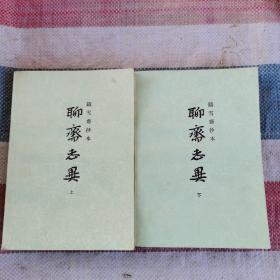 鑄雪齋抄本
聊齋志異
上
鑄雪齋抄本
聊齋志異
下